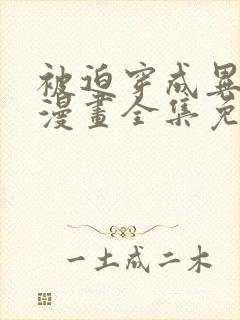 被迫穿成異
漫畫全集免
一土成二木